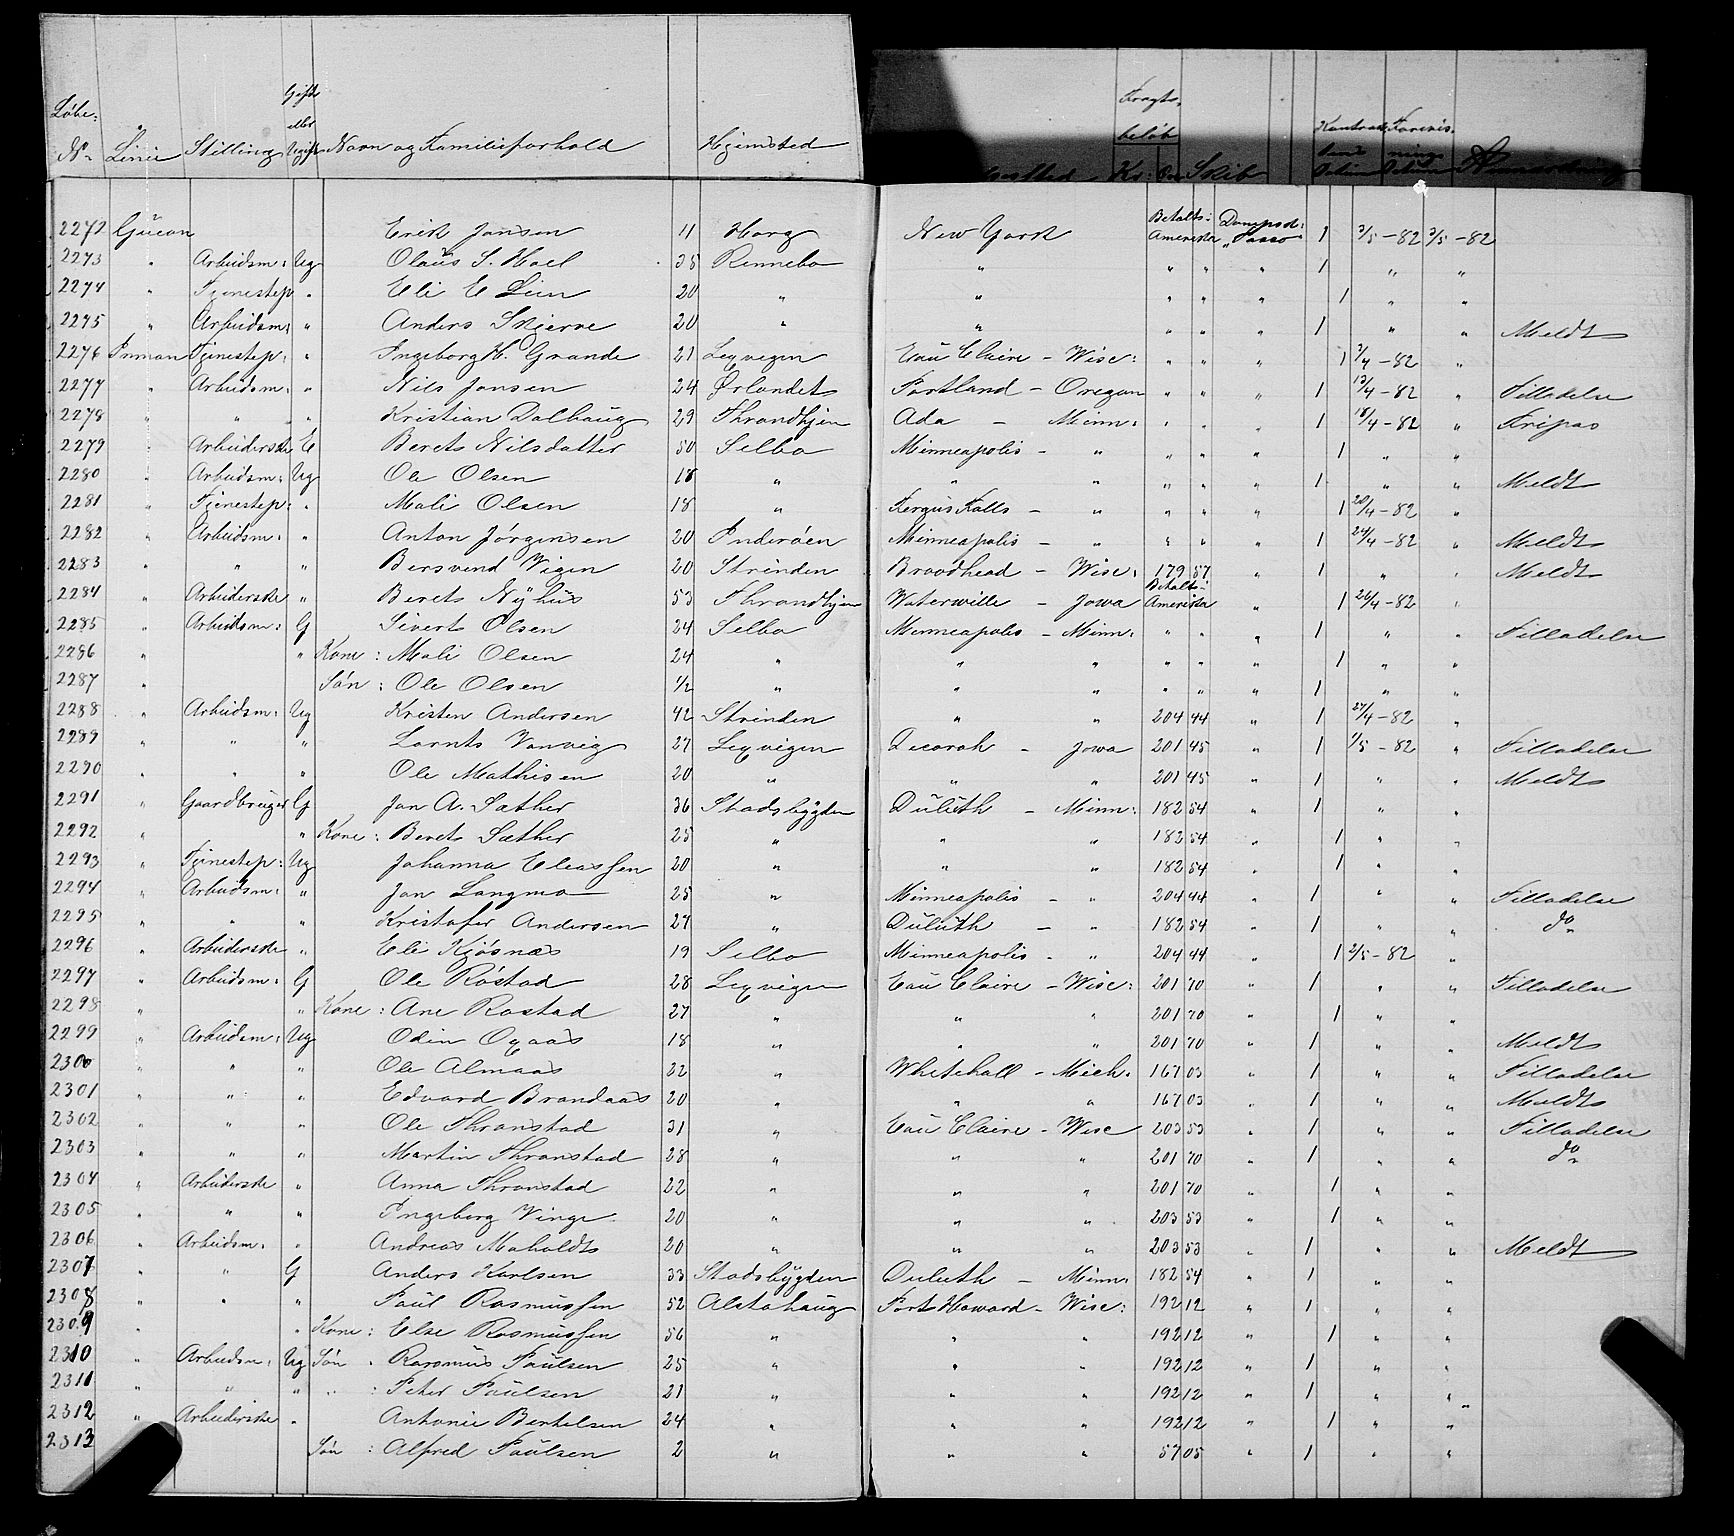 Løbe: № Linie Stilling Gift eller Ugift Navn og Familieforhold Hjemsted Fragtbeløb Kr: Skib Anmærkning
2272 Guion Erik Jonsen 11 Horg New York Betalt i Amerika Dampsk: "Tasso" 1 3/5-82 3/5-82
2273 " Arbeidsm: Ug Olaus S. Hoel 35 Rennebo " " " " 1 " "
2274 " Tjenestep " Eli E Lien 20 " " " " " 1 " "
2275 " Arbeidsm: " Anders Skierve 20 " " " " " 1 " " Meldt
2276 Inman Tjenestep: " Ingeborg H. Grande 21 Lexvigen Eau Claire - Wisc: " " " 1 3/4-82 "
2277 " Arbeidsm: " Nils Jonsen 24 Ørlandet Portland - Oregon " " " 1 13/4-82 " Tilladelse
2278 " " " Kristian Dalhaug 29 Throndhjem Ada - Minn: " " " 1 18/4-82 " Fripas
2279 " Arbeiderske E Beret Nilsdatter 50 Selbo Minneapolis - " " " " 1 " "
2280 " Arbeidsm: Ug Ole Olsen 18 " " " " " " 1 " " Meldt
2281 " Tjenestep: " Mali Olsen 18 " Fergus Falls - " " " " 1 20/4-82 "
2282 " Arbeidsm: " Anton Jørgensen 20 Inderøen Minneapolis - " " " " 1 24/4-82 " Meldt
2283 " " " Bersvend Vigen 20 Strinden Broadhead - Wisc: 179 57 " 1 " " Meldt
2284 " Arbeiderske " Beret Nyhus 53 Throndhjem Waterville - Jowa Betalt i Amerika " 1 26/4-82 "
2285 " Arbeidsm: G Sivert Olsen 24 Selbo Minneapolis - Minn: " " " 1 " " Tilladelse
2286 " " Kone: Mali Olsen 24 " " " " " " 1 " "
2287 " Søn: Ole Olsen 1/2 " " " " " " 1 " "
2288 " Arbeidsm: Ug Kristen Andersen 42 Strinden " " 204 44 " 1 27/4-82 "
2289 " " " Lornts Vanvig 27 Lexvigen Decorah - Jowa 201 45 " 1 1/5-82 " Tilladelse
2290 " " " Ole Mathisen 20 " " " 201 45 " 1 " " Meldt
2291 " Gaardbruger G Jon A. Sæther 36 Stadsbygden Duluth - Minn: 182 54 " 1 "
2292 " " Kone: Beret Sæther 25 " " " 182 54 " 1 " "
2293 " Tjenestep: Ug Johanna Eliassen 20 " " " 182 54 " 1 " "
2294 " Arbeidsm: " Jon Langmo 25 " Minneapolis - " 204 44 " 1 " " Tilladelse
2295 " " " Kristofer Andersen 27 " Duluth - " 182 54 " 1 " " do
2296 " Arbeiderske " Eli Kjøsnæs 19 Selbo Minneapolis - " 204 44 " 1 2/5-82 "
2297 " Arbeidsm: G Ole Røstad 28 Lexvigen Eau Claire - Wisc: 201 70 " 1 " " Tilladelse
2298 " " Kone: Ane Røstad 27 " " " 201 70 " 1 " "
2299 " Arbeidsm: Ug Odin Oxaas 18 " " " 201 70 " 1 " " Meldt
2300 " " " Ole Almaas 22 " Whitehall - Mich. 167 03 " 1 " " Tilladelse
2301 " " " Edvard Brandaas 20 " " " 167 03 " 1 " " Meldt
2302 " " " Ole Thronstad 31 " Eau Claire - Wisc 203 53 " 1 " " Tilladelse
2303 " " " Martin Thronstad 28 " " " 201 70 " 1 " " do
2304 " Arbeiderske " Anna Thronstad 22 " " " 201 70 " 1 " "
2305 " " " Ingeborg Vinge 20 " " " 203 53 " 1 " "
2306 " Arbeidsm. " Andreas Moholdt 20 " " " 203 53 " 1 " " Meldt
2307 " " G Anders Karlsen 33 Stadsbygden Duluth - Minn: 182 54 " 1 " "
2308 " " " Paul Rasmussen 52 Alstahaug Fort Howard - Wisc: 192 12 " 1 " "
2309 " " Kone: Else Rasmussen 56 " " " 192 12 " 1 " "
2310 " Arbeidsm: Ug Søn " Rasmus Paulsen 25 " " " 192 12 " 1 " "
2311 " " " " : Peter Paulsen 21 " " " 192 12 " 1 " "
2312 " Arbeiderske " Antonie Bertelsen 24 " " " 192 12 " 1 " "
2313 Søn: Alfred Paulsen 2 " " " 57 05 " 1 " "